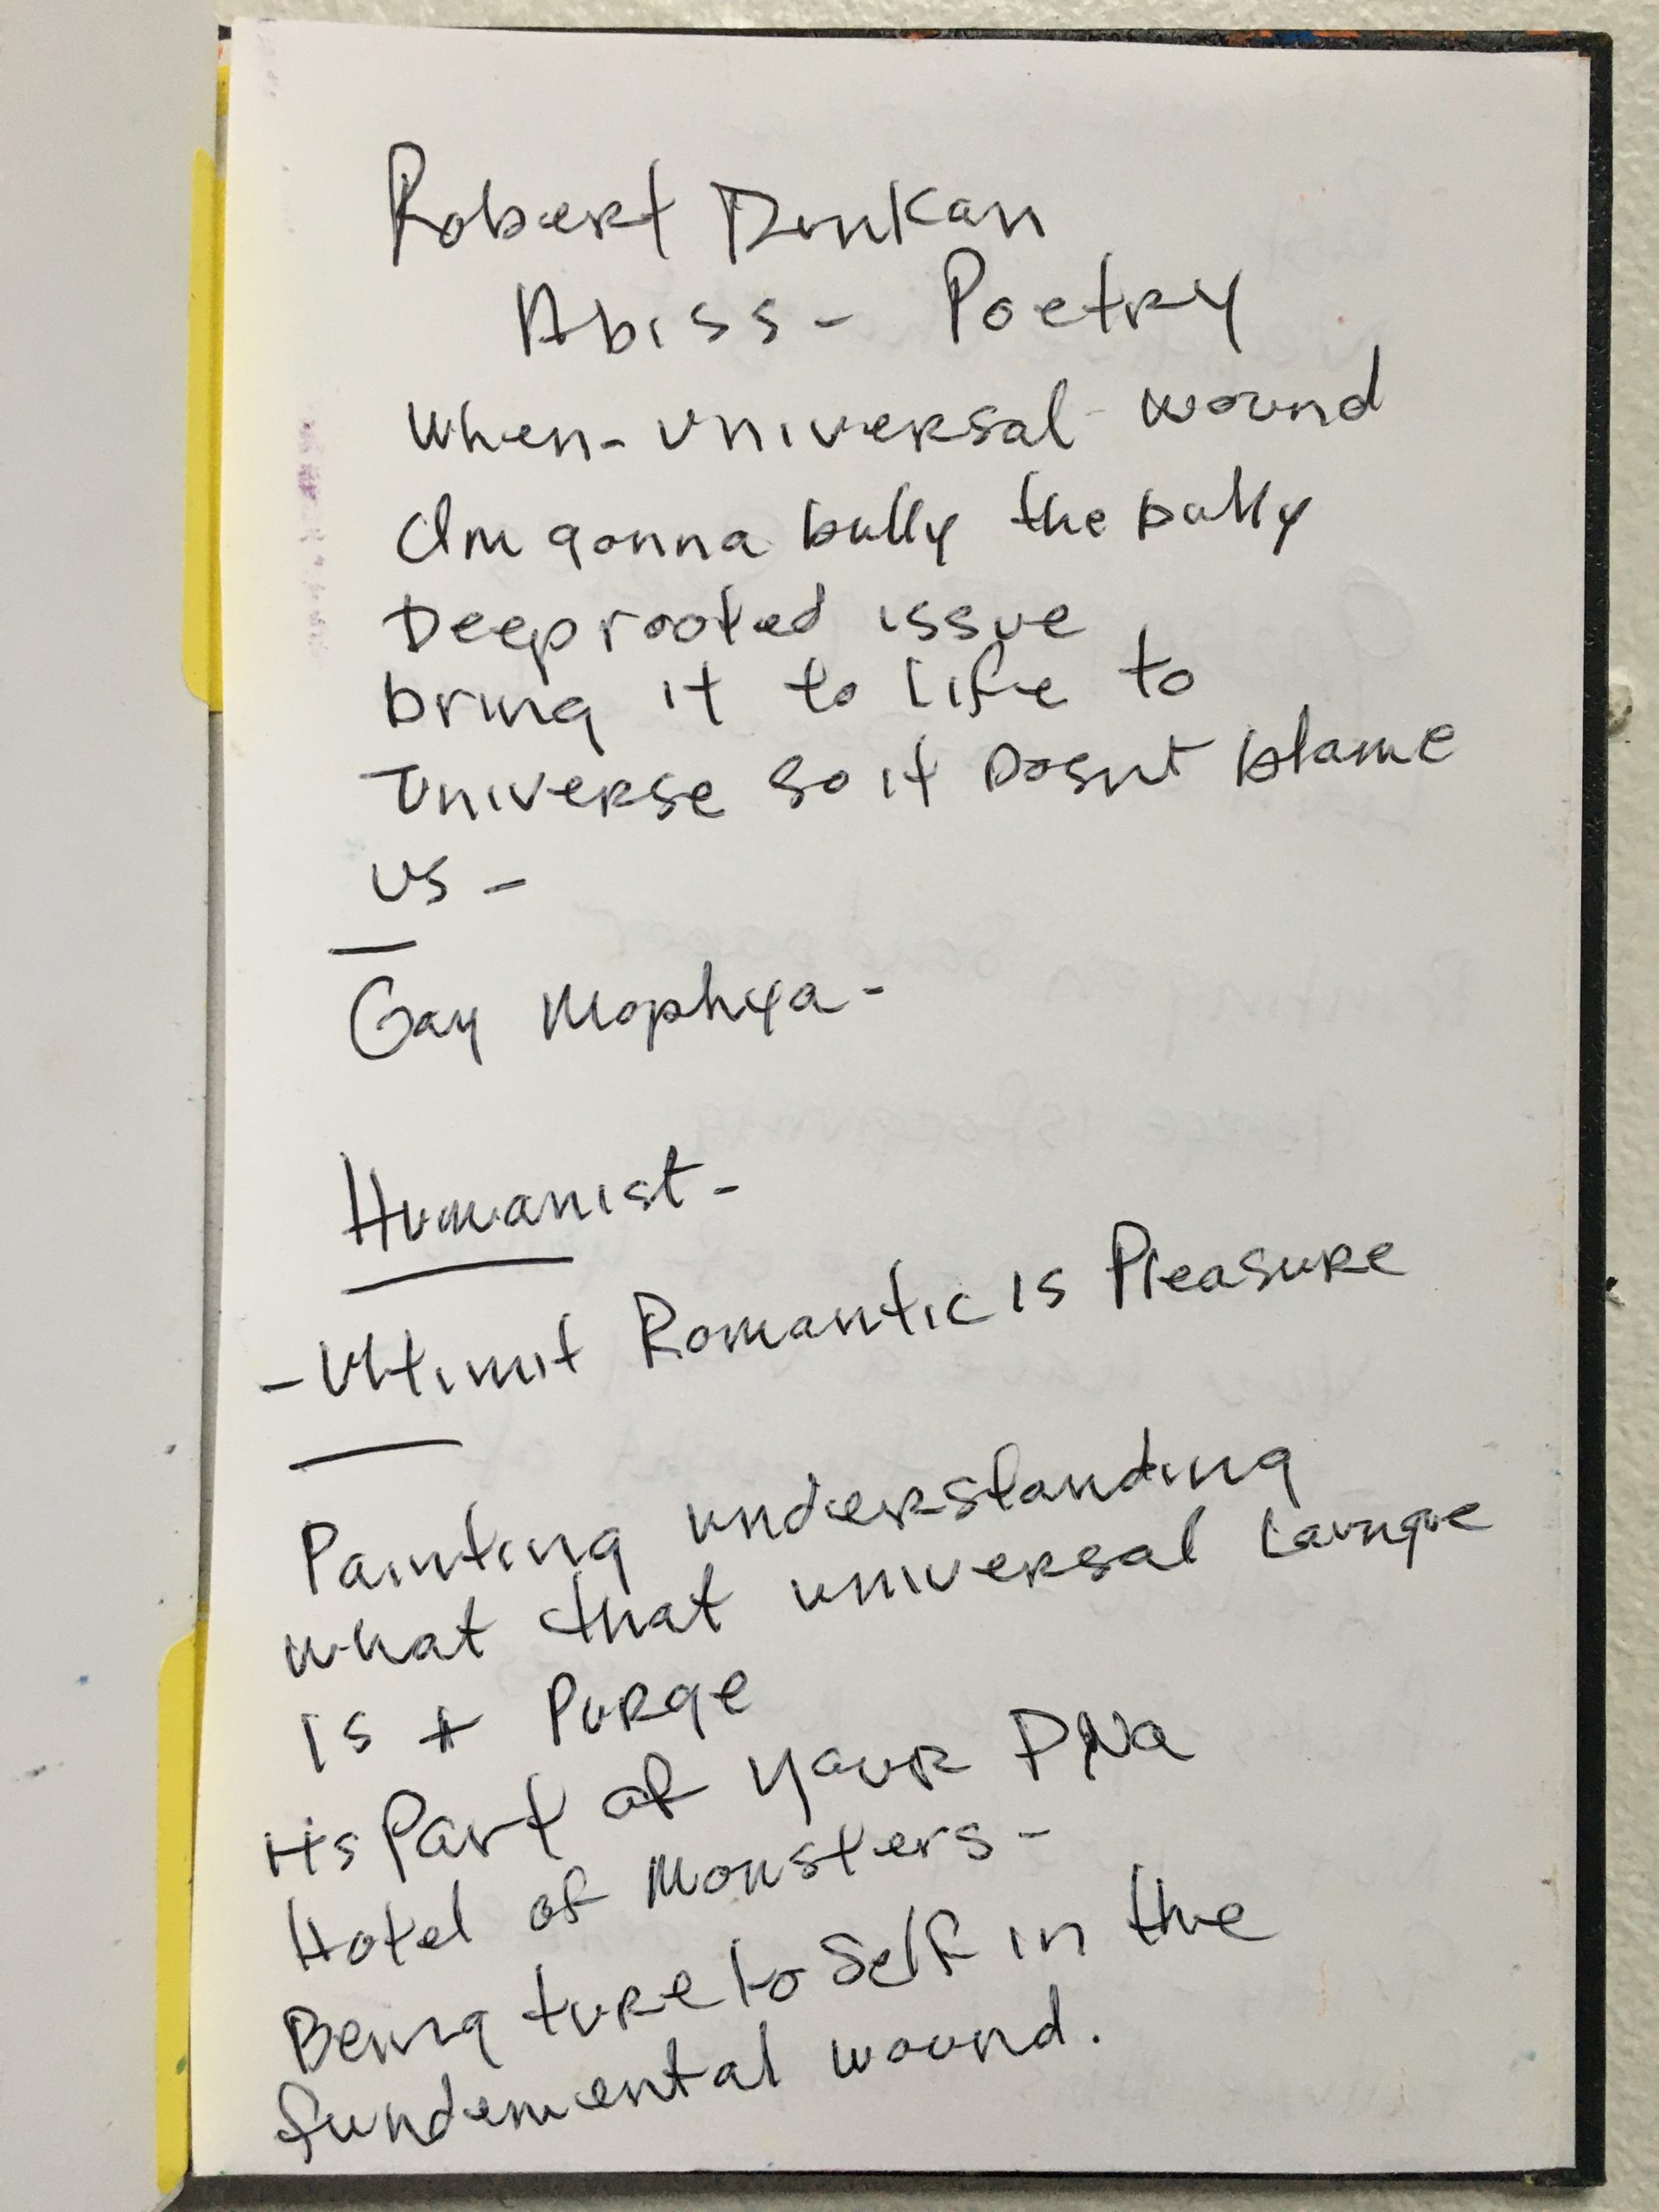 Robert Dunkan
Abiss - Poetry
When - universal wound
Im gonna bully the bully
Deep rooted issue
bring it to life to
Universe so it Dosnt blame
us -
Gay Mophya -
Humanist -
- Ultimit Romantic is Pleasure
Painting understanding
what that universal Laungue
is + Purge
its Part of your DNa
Hotel of Monsters -
Being ture to Self in the
fundemental wound.